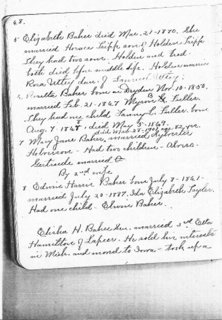 48.
5 Elizabeth Baker died Mar. 21-1880, she
married Horace Tiffe, son of Holden Tiffe
They had two sons. Holden and Fred
both died before middle life. Holden married
Rosa Utley dau. of Utley;
6 Rosetta Baker born on Dryden Nov. 10-1850,
married Feb. 21-1867 Myron E. Fuller
They had one child. Fuller born
Aug. 9-1867 - died May 5-1867.
7 Mary Jane Baker, married
Holverson - Had two children - Alvres
Gertrude married
By 2nd wife
8 Edwin Harris Baker born July 8-1861-
married July 20-1887, Ida Elizabeth Taylor.
Had one child. Elsvie Baker.
Elisha H. Baker, sen. married, 3rd Etta
Hamilton of Lapeer. He sold his interests
in Mich. and moved to Iowa - took up a